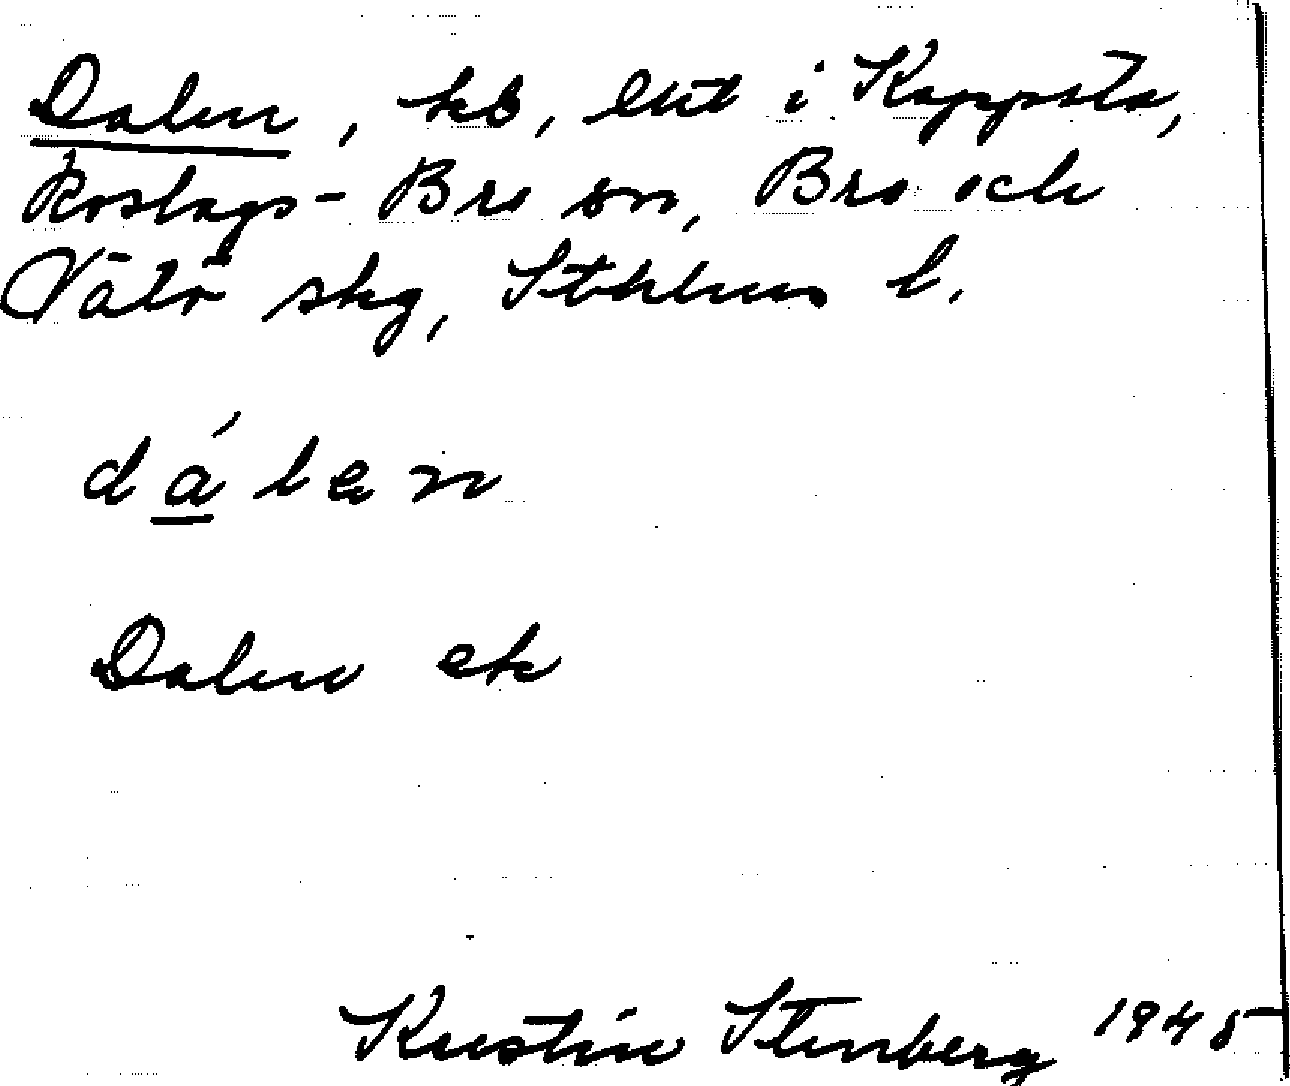 Dalen, hb, lht i Kappsta,
Roslags-Bro sn, Bro och
Vätö skg, Sthlms l.
dálen
Dalen ek
Kerstin Stenberg 1945